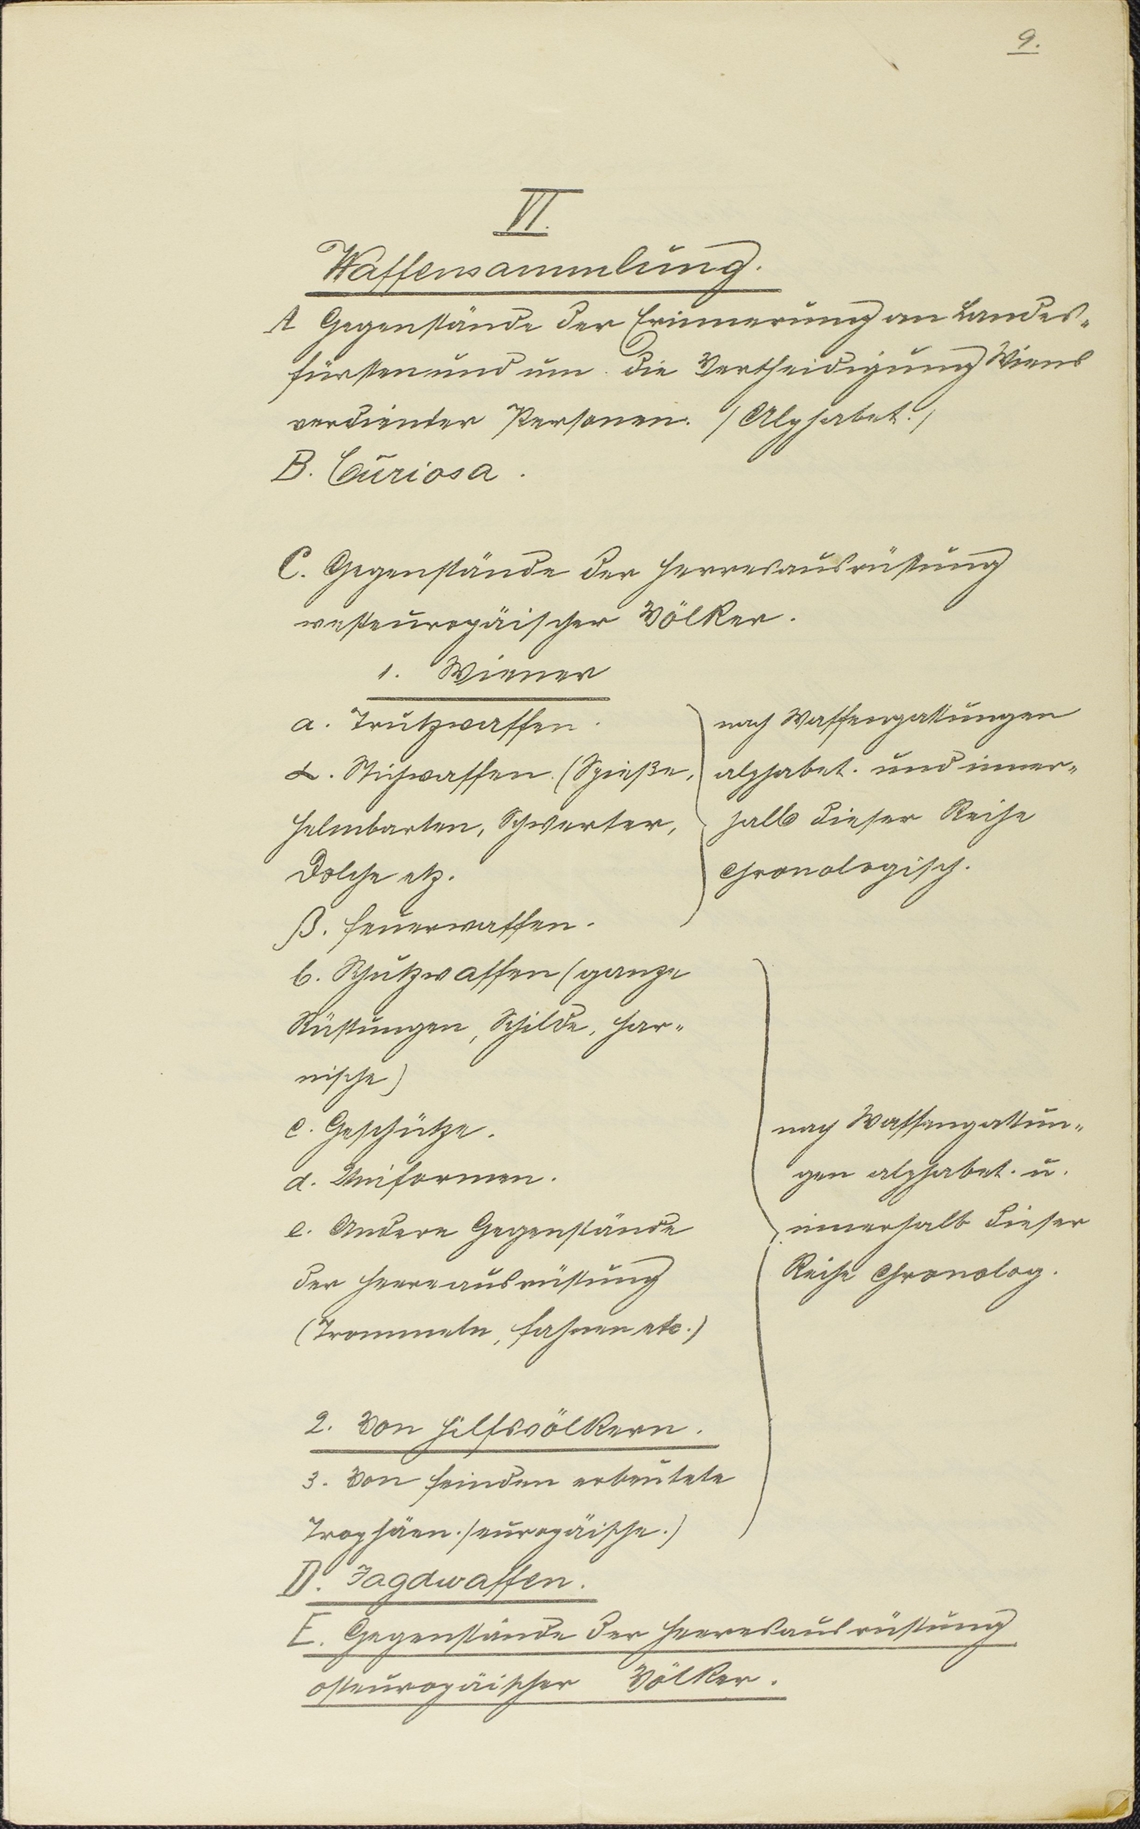 9.
VI.
Waffensammlung.
A Gegenstände der Erinnerung an Landes-
fürsten und um die Vertheidigung Wiens
verdienter Personen. /Alphabet./
B. Curiosa.
C. Gegenstände der Heeresausrüstung
westeuropäischer Völker.
1. Wiener
a. Trutzwaffen.
α. Stichwaffen. (Spieße,
Helmbarten, Schwerter,
Dolche etz.
β. Feuerwaffen.
nach Waffengattungen
alphabet. und inner-
halb dieser Reihe
chronologisch.
b. Schutzwaffen (ganze
Rüstungen, Schilde, Har-
nische)
c. Geschütze.
d. Uniformen.
e. Andere Gegenstände
der Heereausrüstung
(Trommeln, Fahnen etc.)
2. Von Hilfsvölkern.
3. Von Feinden erbeutete
Trophäen. /europäische.)
nach Waffengattun-
gen alphabet. u.
innerhalb dieser
Reihe chronolog.
D. Jagdwaffen.
E. Gegenstände der Heeresausrüstung
osteuropäischer Völker.